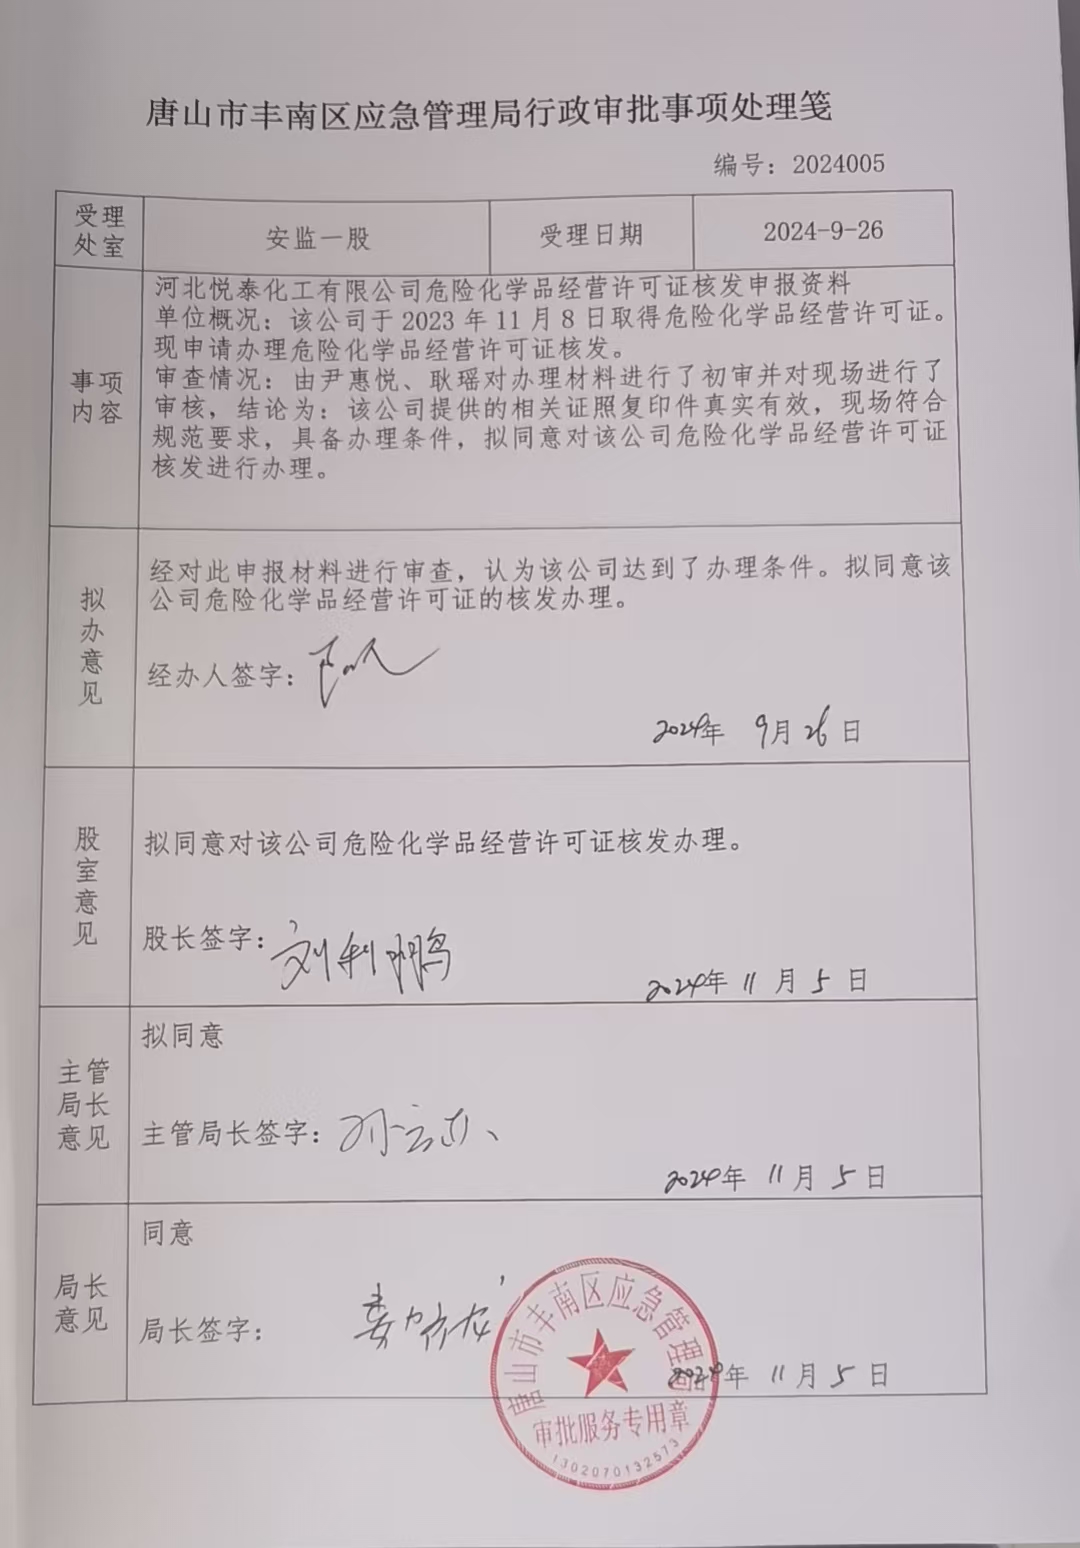 唐山市丰南区应急管理局行政审批事项处理笺
编号：2024005
受理
处室
安监一股
受理日期
2024-9-26
事项
内容
河北悦泰化工有限公司危险化学品经营许可证核发申报资料
单位概况：该公司于 2023 年 11 月 8 日取得危险化学品经营许可证。
现申请办理危险化学品经营许可证核发。
审查情况：由尹惠悦、耿瑶对办理材料进行了初审并对现场进行了
审核，结论为：该公司提供的相关证照复印件真实有效，现场符合
规范要求，具备办理条件，拟同意对该公司危险化学品经营许可证
核发进行办理。
拟
办
意
见
经对此申报材料进行审查，认为该公司达到了办理条件。拟同意该
公司危险化学品经营许可证的核发办理。
经办人签字：
2024年 9月 26日
股
室
意
见
拟同意对该公司危险化学品经营许可证核发办理。
股长签字：刘利鹏
2024年 11 月 5 日
主管
局长
意见
拟同意
主管局长签字：
2024年 11 月 5 日
局长
意见
同意
局长签字：
2024年 11 月 5 日
唐山市丰南区应急管理局
审批服务专用章
1302070132573